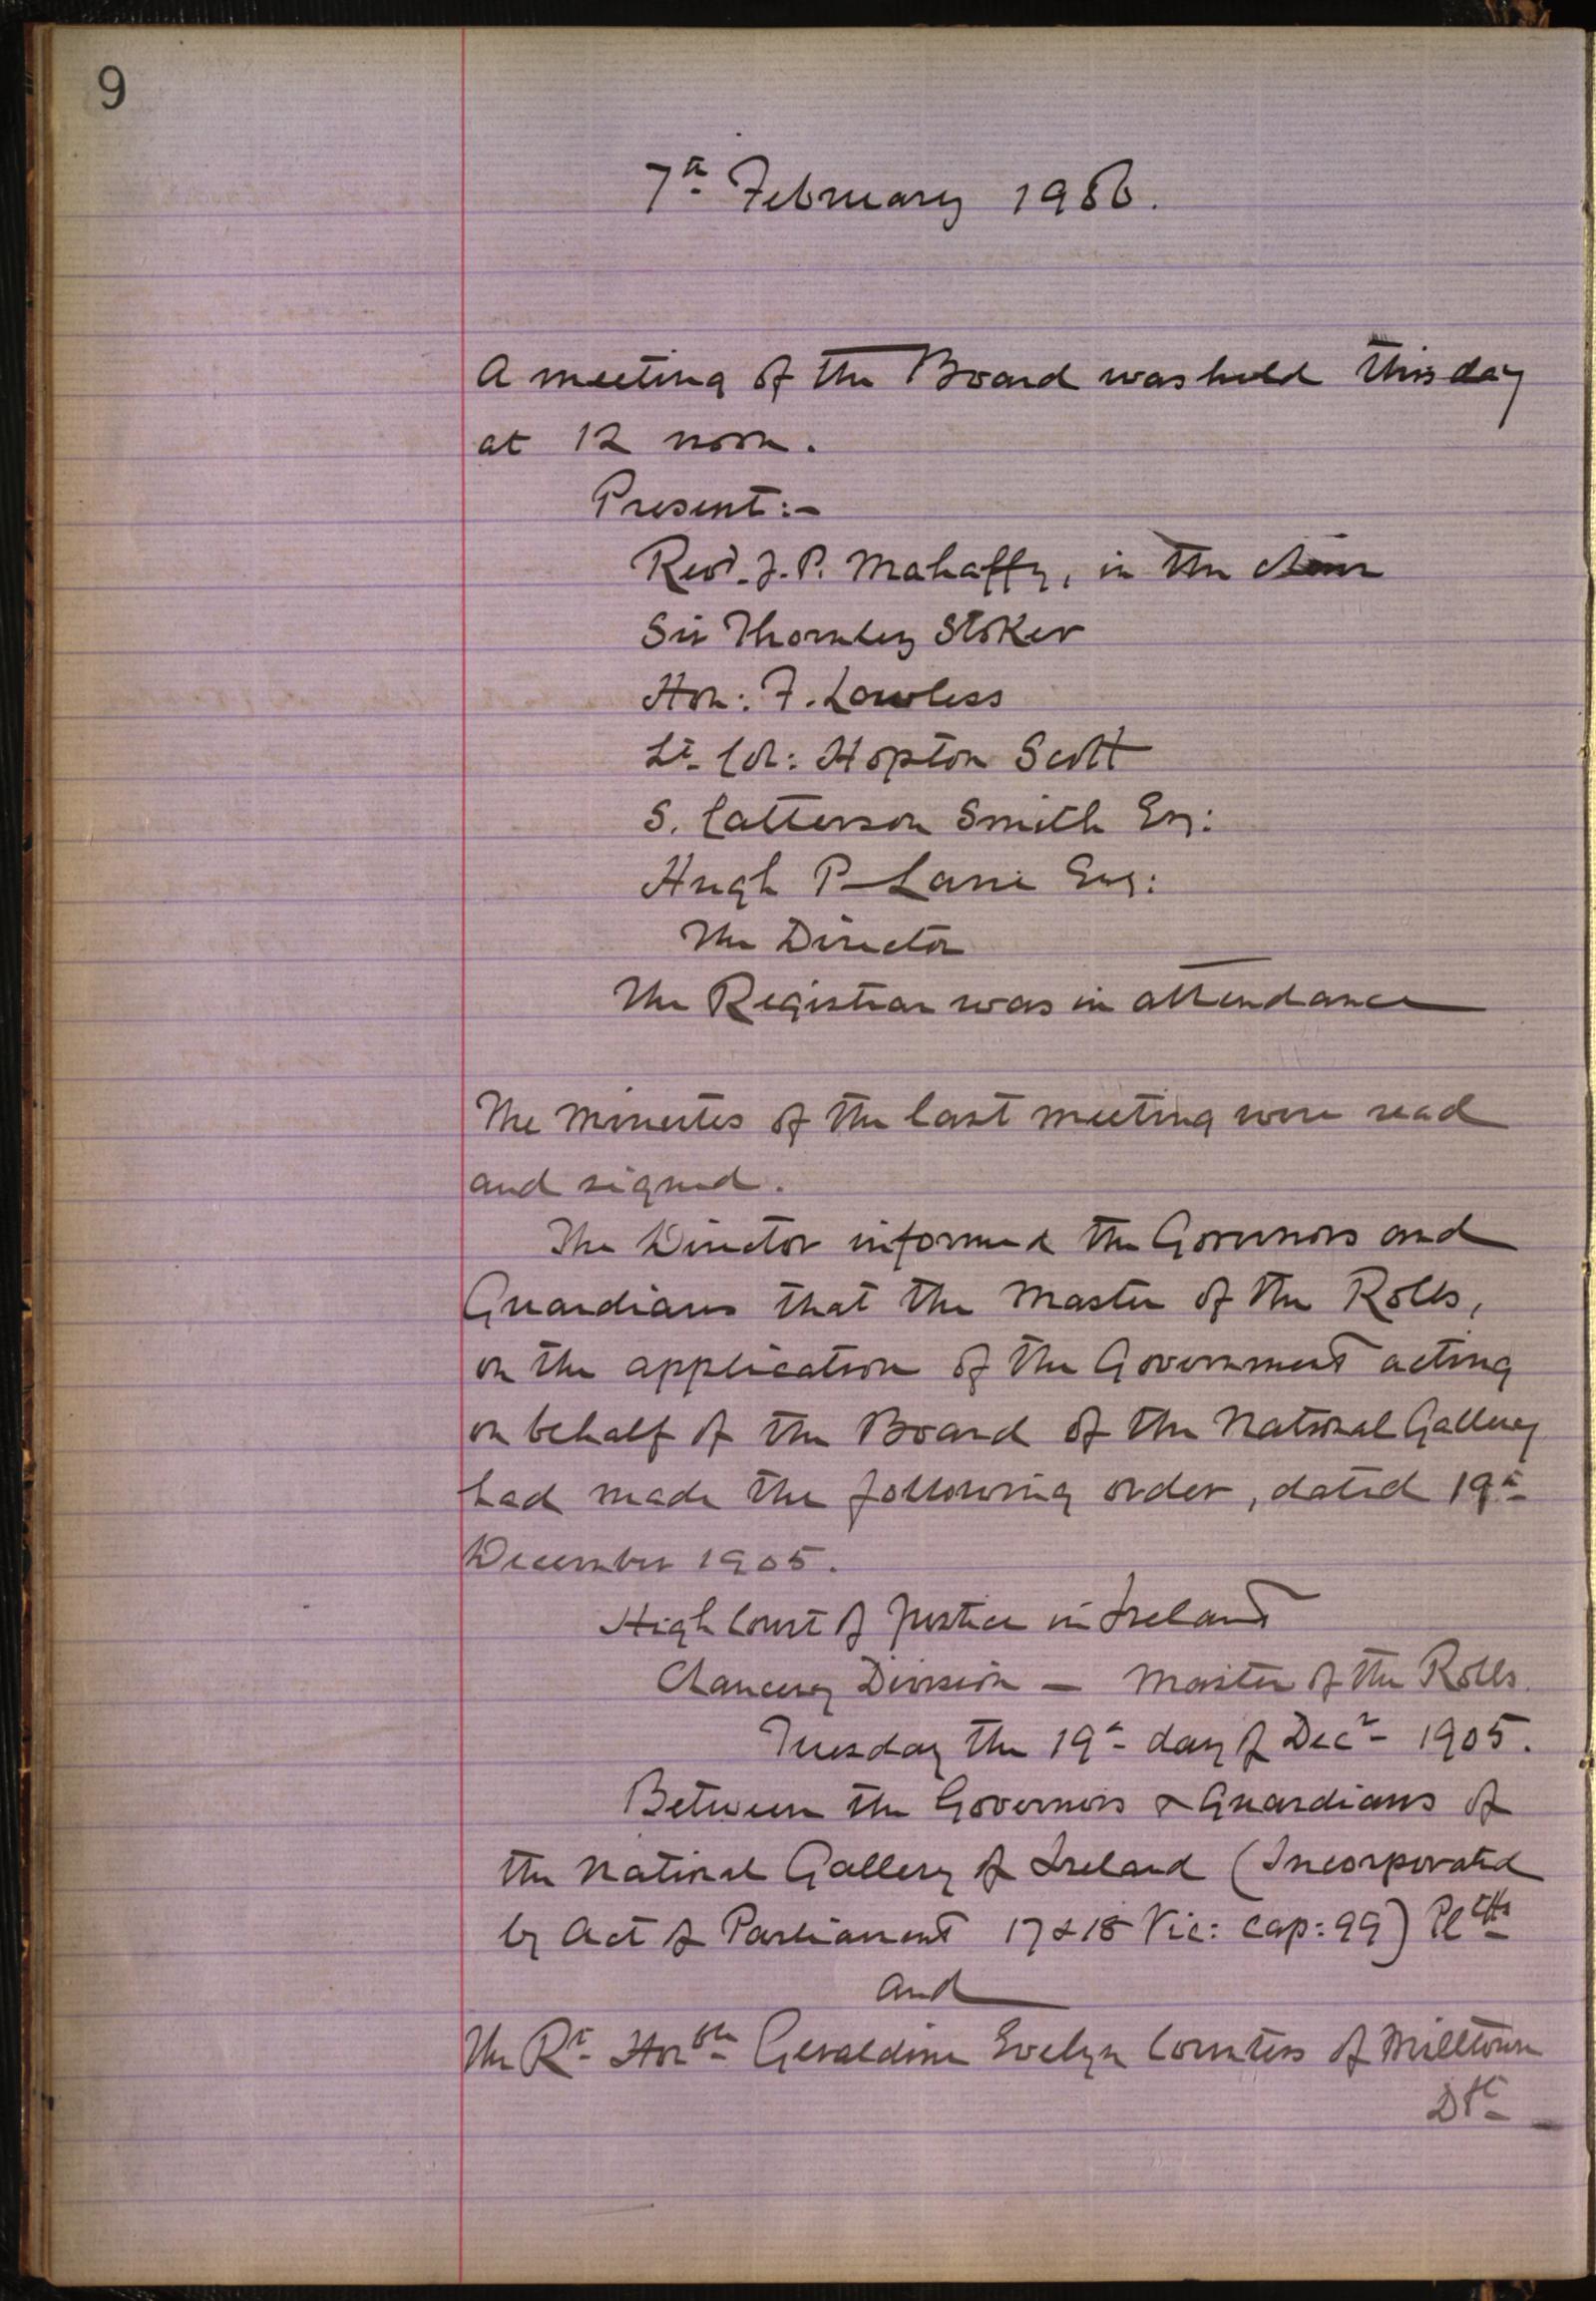 9
7th February 1906.
A meeting of the Board was held this day
at 12 noon.
Present:-
Revd. J. P. Mahaffy, in the chair
Sir Thornley Stoker
Hon: F. Lawless
Lt. Col: Hopton Scott
S. Catterson Smith Esq:
Hugh P. Lane Esq:
The Director
The Registrar was in attendance
The Minutes of the last meeting were read
and signed.
The Director informed the Governors and
Guardians that the Master of the Rolls,
on the application of the Government acting
on behalf of the Board of the National Gallery
had made the following order, dated 19th
December 1905.
High Court of Justice in Ireland
Chancery Division - Master of the Rolls.
Tuesday the 19th day of Decr 1905.
Between the Governors & Guardians of
the National Gallery of Ireland (Incorporated
by Act of Parliament 17 & 18 Vic: Cap: 99) Pltffs
and
The Rt Honble Geraldine Evelyn Countess of Milltown
Dft